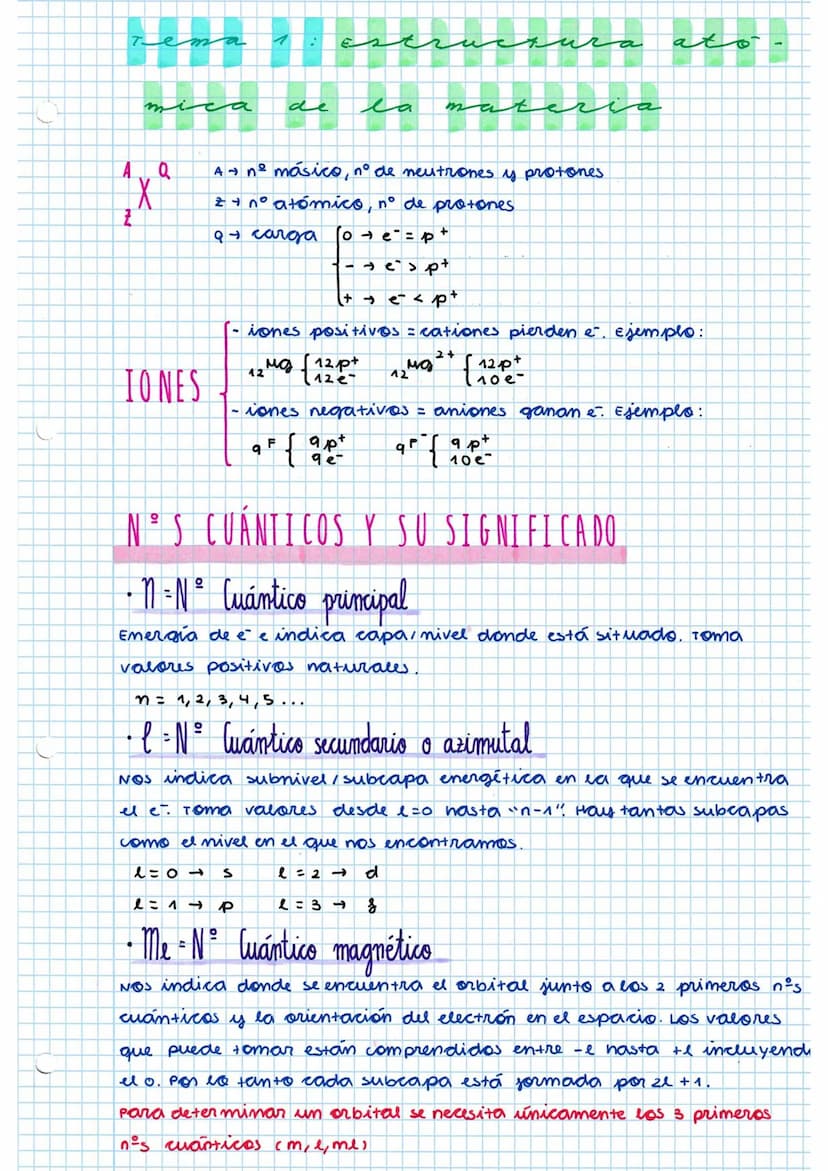 Tema 1: Estructura ató-
mica de la materia
A X Q Z
A → nº másico, nº de neutrones y protones
Z → nº atómico, nº de protones
Q → carga { 0 → e⁻ = p⁺
- → e⁻ > p⁺
+ → e⁻ < p⁺
IONES
- iones positivos = cationes pierden e⁻. Ejemplo:
₁₂Mg { 12p⁺ 12e⁻ ₁₂Mg²⁺ { 12p⁺ 10e⁻
- iones negativos = aniones ganan e⁻. Ejemplo:
₉F { 9p⁺ 9e⁻ ₉F⁻ { 9p⁺ 10e⁻
NºS CUÁNTICOS Y SU SIGNIFICADO
· n = Nº Cuántico principal
Energía de e⁻ e indica capa/nivel donde está situado. Toma
valores positivos naturales.
n = 1, 2, 3, 4, 5...
· l = Nº Cuántico secundario o azimutal
Nos indica subnivel/subcapa energética en la que se encuentra
el e⁻. Toma valores desde l=0 hasta "n-1". Hay tantas subcapas
como el nivel en el que nos encontramos.
l = 0 → s l = 2 → d
l = 1 → p l = 3 → f
· Me = Nº Cuántico magnético
Nos indica donde se encuentra el orbital junto a los 2 primeros nºs
cuánticos y la orientación del electrón en el espacio. Los valores
que puede tomar están comprendidos entre -l hasta +l incluyend
el 0. Por lo tanto cada subcapa está formada por 2l + 1.
Para determinar un orbital se necesita únicamente los 3 primeros
nºs cuánticos (m, l, ml)